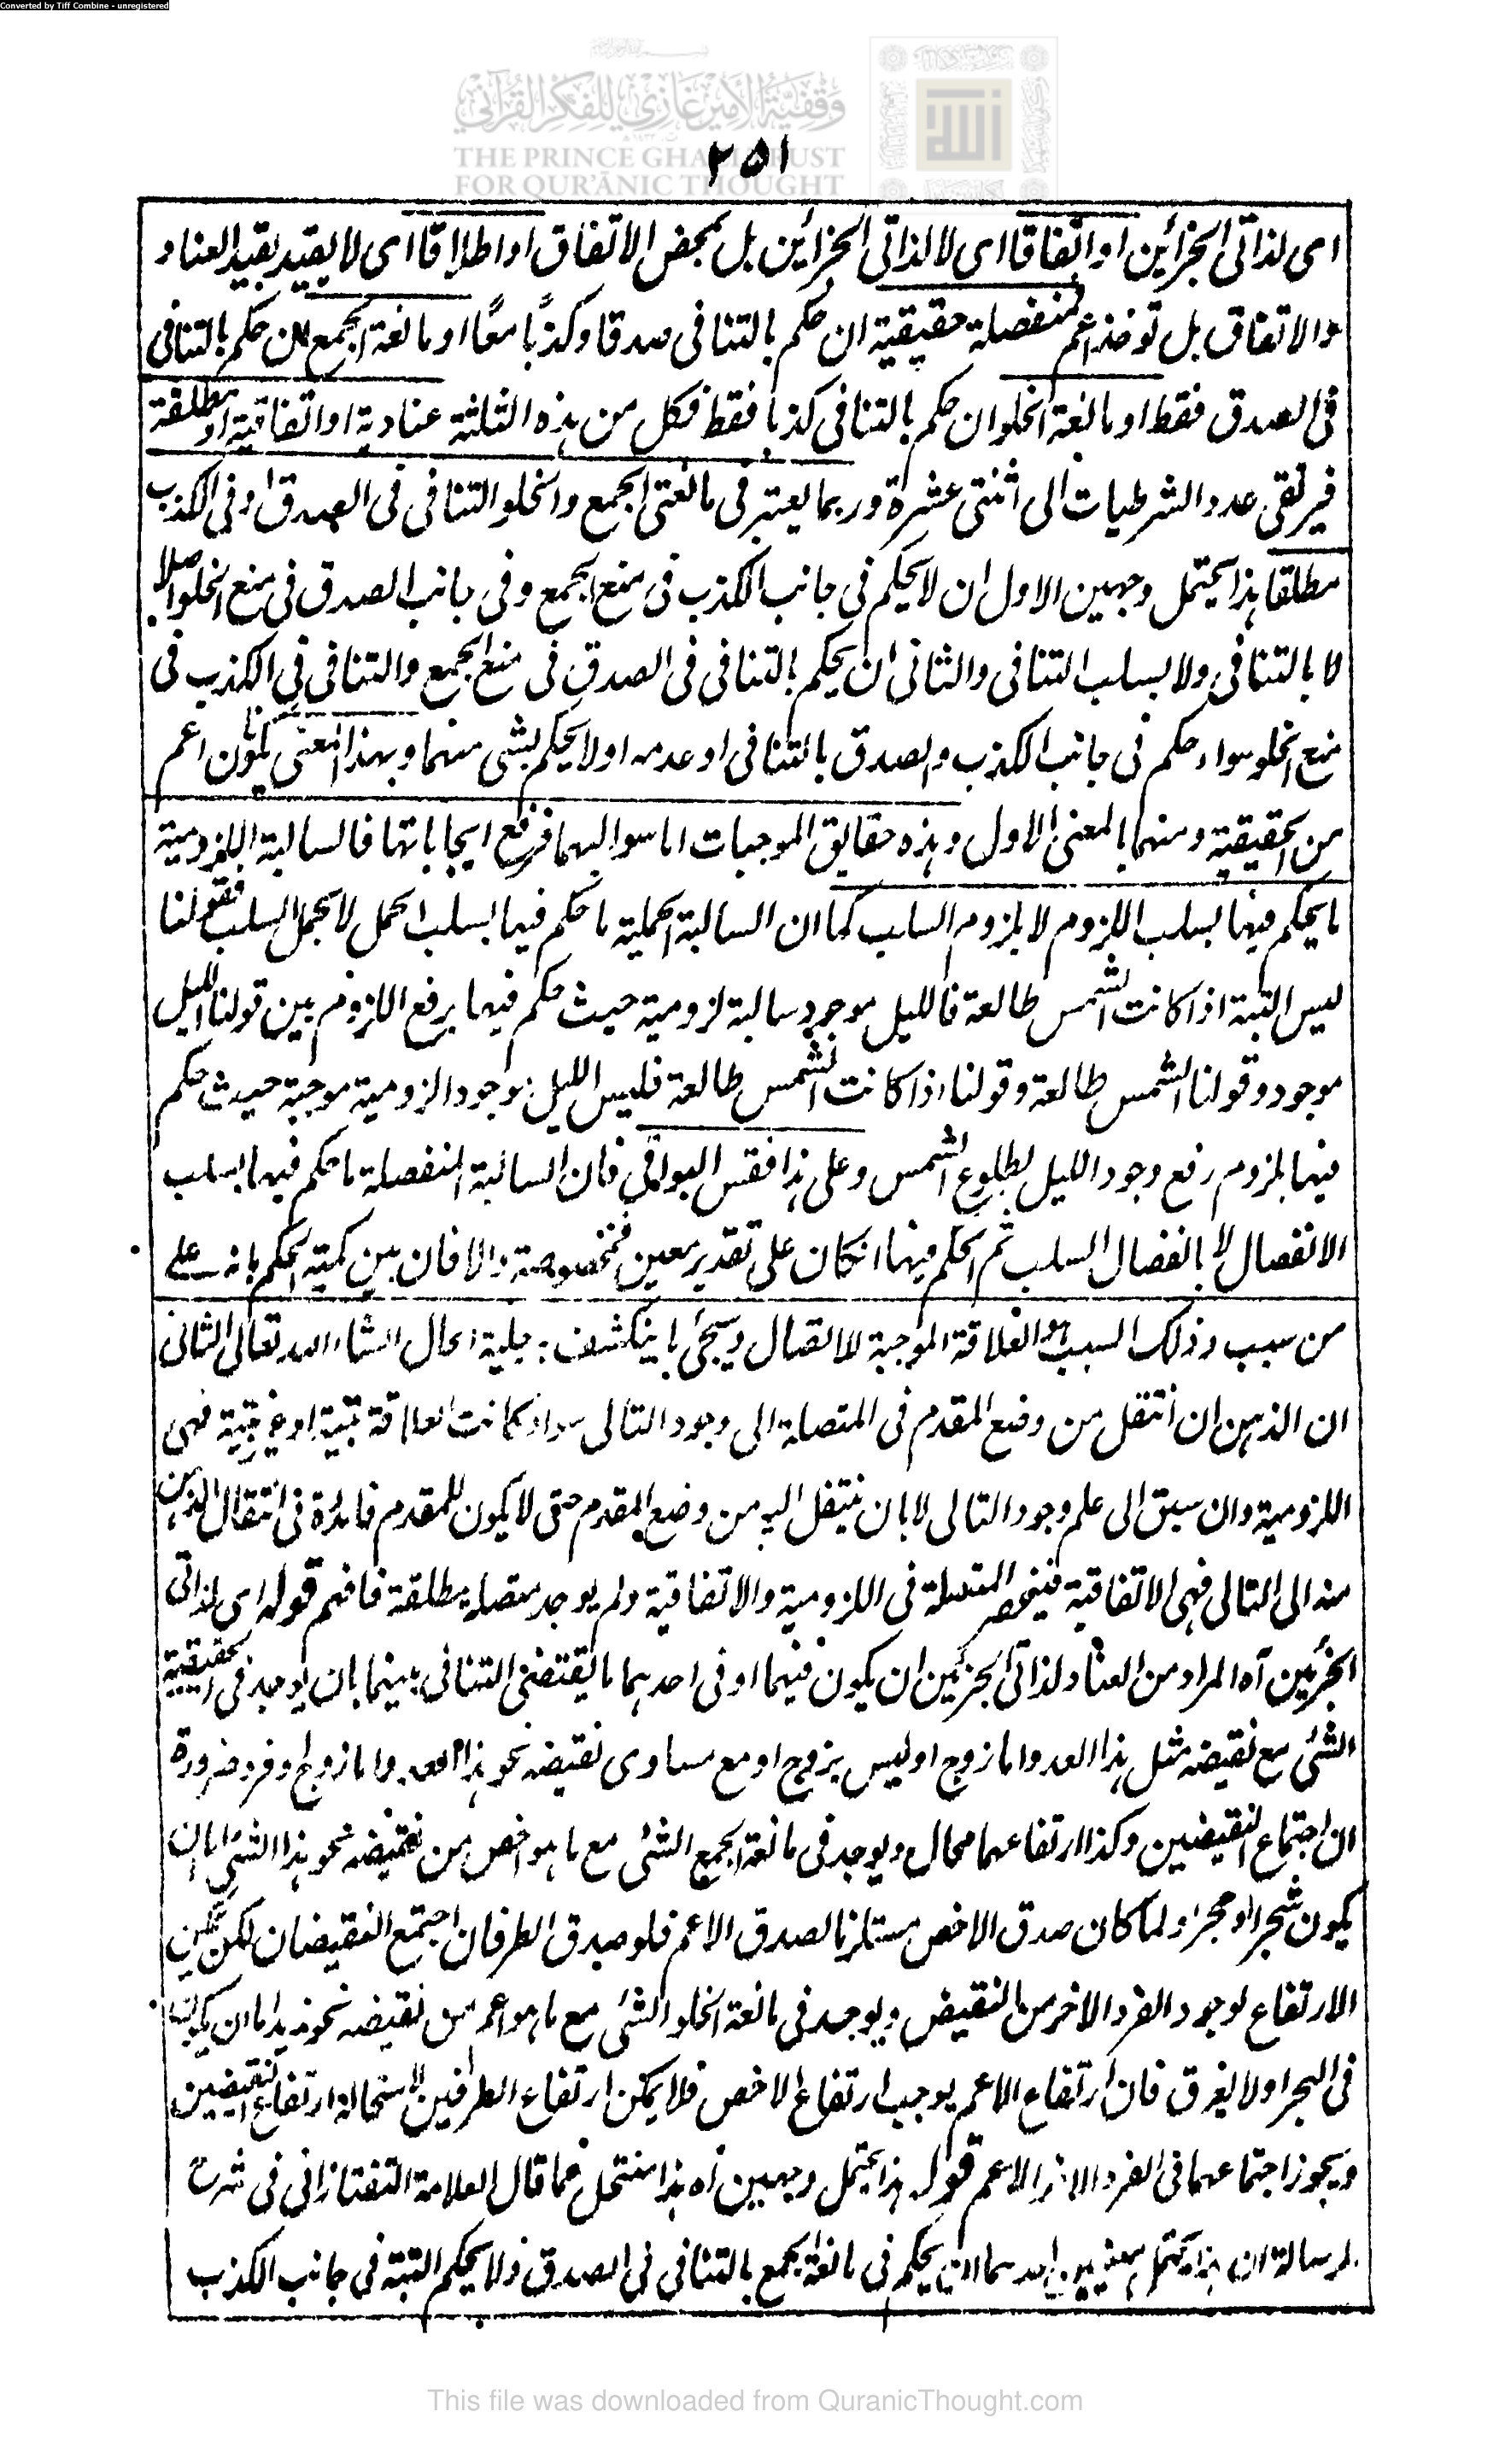 Converted by Tiff Combine - unregistered
وقفية الأمير غازي للفكر القرآني
THE PRINCE GHAZI TRUST
FOR QUR'ĀNIC THOUGHT
٢٥١
اى لذاتى الجزائين او اتفاقا اى لا لذاتى الجزائين بل بمحض الاتفاق او اطلاقا اى لا يقيد بقيد العناد
والاتفاق بل توخذ اعم فمنفصلة حقيقية ان حكم بالتنافى صدقا وكذبا معًا او مانعة الجمع ان حكم بالتنافى
فى الصدق فقط او مانعة الخلو ان حكم بالتنافى كذبا فقط فكل من هذه الثلثة عنادية او اتفاقية او مطلقة
فيرتقى عدد الشرطيات الى اثنتى عشرة وربما يعتبر فى مانعتى الجمع والخلو التنافى فى الصدق او فى الكذب
مطلقا هذا يحتمل وجهين الاول ان لا يحكم فى جانب الكذب فى منع الجمع وفى جانب الصدق فى منع الخلو اصلا
لا بالتنافى ولا بسلب التنافى والثانى ان يحكم بالتنافى فى الصدق فى منع الجمع والتنافى فى الكذب فى
منع الخلو سواء حكم فى جانب الكذب والصدق بالتنافى او عدمه او لا يحكم بشى منهما وبهذا المعنى يكونان اعم
من الحقيقية ومنهما بالمعنى الاول وهذه حقايق الموجبات اما سوالبهما فرفع ايجاباتها فالسالبة اللزومية
ما يحكم فيها بسلب اللزوم لا بلزوم السلب كما ان السالبة الحملية ما حكم فيها بسلب الحمل لا بحمل السلب فقولنا
ليس البتة اذا كانت الشمس طالعة فالليل موجود سالبة لزومية حيث حكم فيها برفع اللزوم بين قولنا الليل
موجود وقولنا الشمس طالعة وقولنا اذا كانت الشمس طالعة فليس الليل بموجود الزومية موجبة حيث حكم
فيها بلزوم رفع وجود الليل لطلوع الشمس وعلى هذا فقس البواقى فان السالبة المنفصلة ما حكم فيها بسلب
الانفصال لا بانفصال السلب ثم الحكم فيها انكان على تقدير معين فمخصوصة والا فان بين كمية الحكم بانه على
من سبب وذلك السبب هو العلاقة الموجبة للاتصال وسيجئ ما ينكشف به جلية الحال انشاء الله تعالى الثانى
ان الذهن ان انتقل من وضع المقدم فى المتصلة الى وجود التالى سواء كانت العلاقة بينة او غير بينة فهى
اللزومية وان سبق الى علم وجود التالى لا بان ينتقل اليه من وضع المقدم حتى لا يكون للمقدم فائدة فى انتقال الذهن
منه الى التالى فهى الاتفاقية فينحصر المتصلة فى اللزومية والاتفاقية ولم يوجد متصلة مطلقة فافهم قوله اى لذاتى
الجزئين آه المراد من العناد لذاتى الجزئين ان يكون فيهما او فى احدهما ما يقتضى التنافى بينهما بان يوجد فى الحقيقية
الشئ مع نقيضه مثل هذا العدد اما زوج او ليس بزوج او مع مساوى نقيضه نحو هذا العدد اما زوج او فرد ضرورة
ان اجتماع النقيضين وكذا ارتفاعهما محال ويوجد فى مانعة الجمع الشئ مع ما هو اخص من نقيضه نحو هذا الشئ اما ان
يكون شجرا او حجرا ولما كان صدق الاخص مستلزما لصدق الاعم فلو صدق الطرفان اجتمع النقيضان لكن يمكن
الارتفاع لوجود الفرد الاخر من النقيض ويوجد فى مانعة الخلو الشئ مع ما هو اعم من نقيضه نحو زيد اما ان يكون
فى البحر او لا يغرق فان ارتفاع الاعم يوجب ارتفاع الاخص فلا يمكن ارتفاع الطرفين لاستحالة ارتفاع النقيضين
ويجوز اجتماعهما فى الفرد الاخر الاعم قوله هذا يحتمل وجهين آه هذا منتحل مما قال العلامة التفتازانى فى شرح
الرسالة ان هذا يحتمل معنيين احدهما ان يحكم فى مانعة الجمع بالتنافى فى الصدق ولا يحكم البتة فى جانب الكذب
This file was downloaded from QuranicThought.com